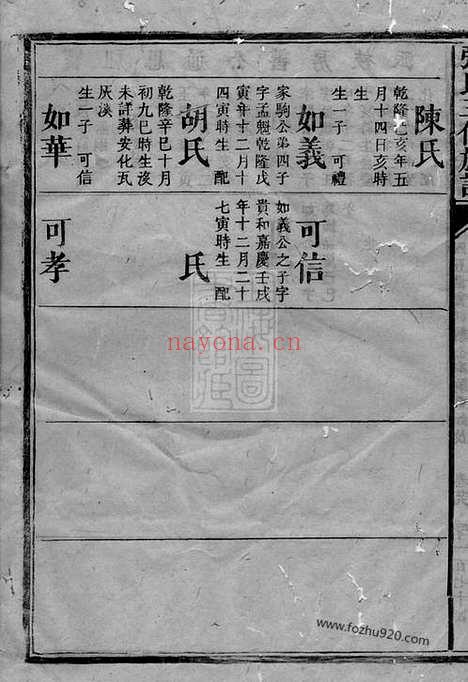 陳氏
乾隆乙亥年五
月十四日亥時
生
生一子 可禮
如義
家駒公第四子
字孟魁乾隆戊
寅年十二月十
四寅時生 配
胡氏
乾隆辛巳十月
初九巳時生沒
未詳葬安化瓦
灰溪
生一子 可信
如華
可信
如義公之子字
貴和嘉慶壬戌
年十二月二十
七寅時生 配
氏
可孝
nayona.cn
www.fozhu920.com